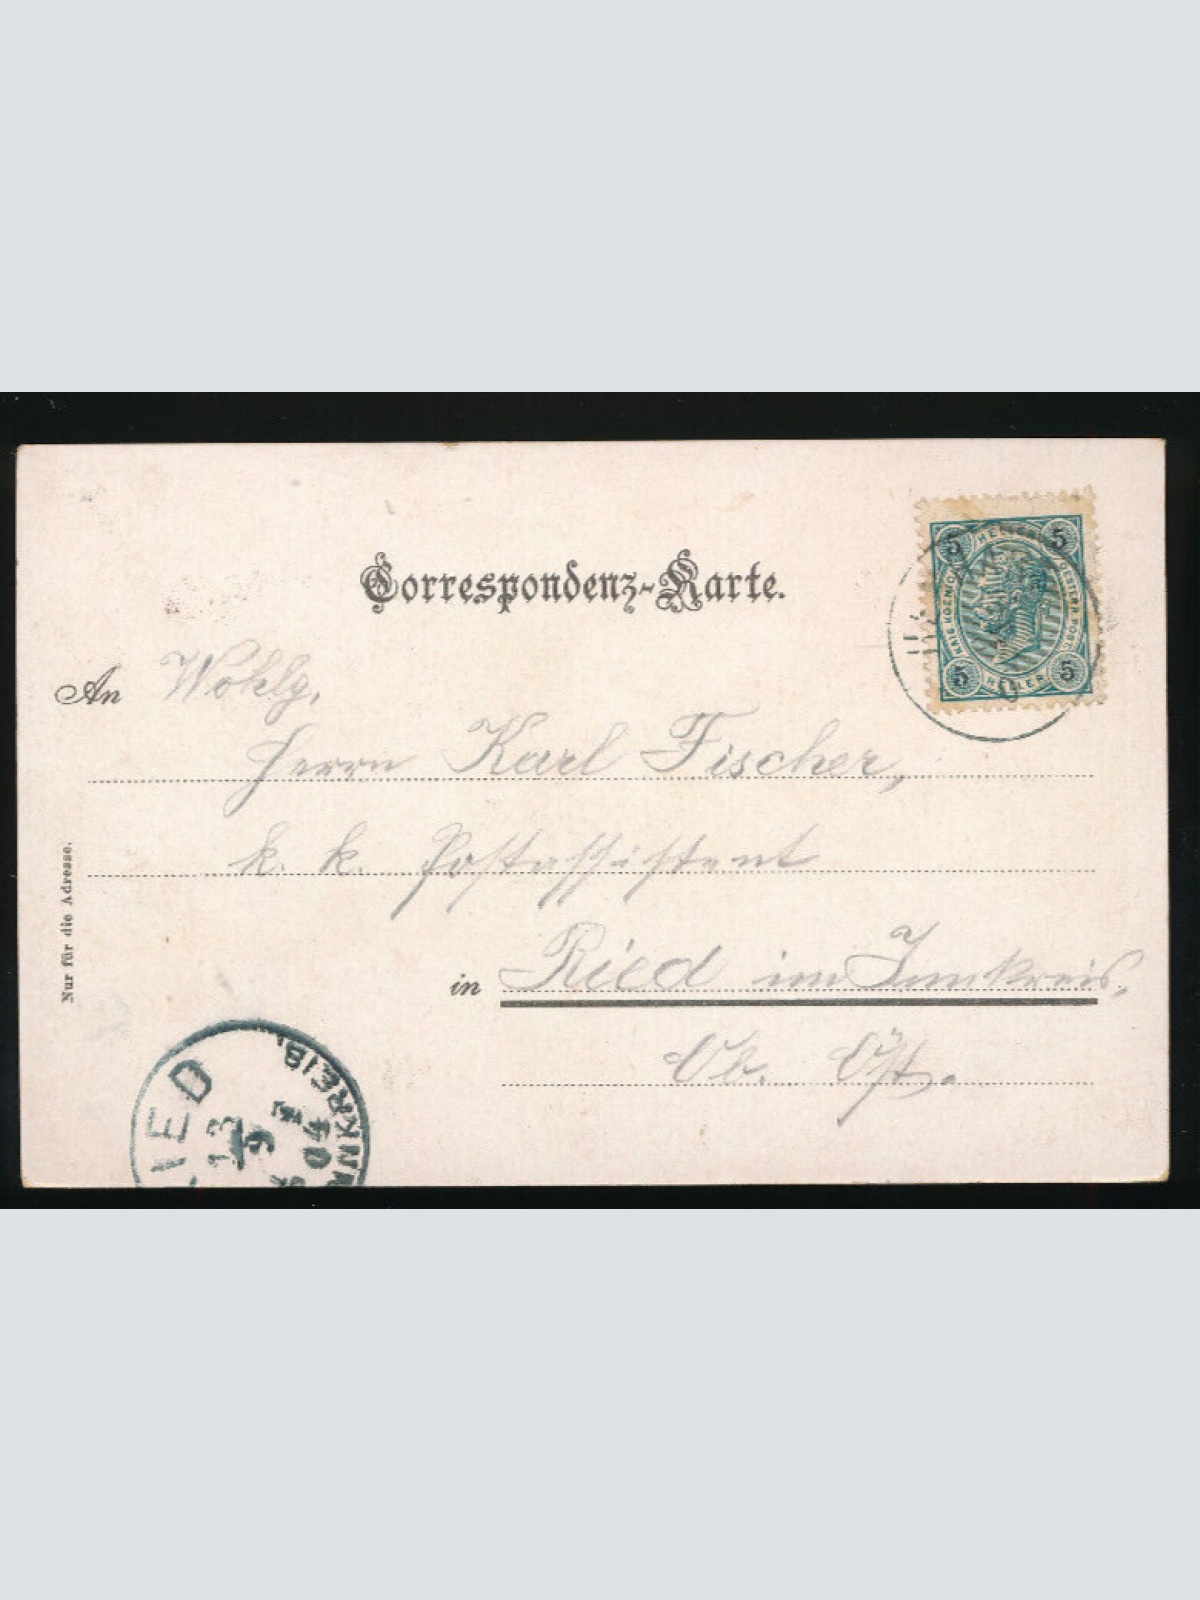 Correspondenz-Karte.
An Wohlg.
Herrn Karl Fischer,
k. k. Postassistent
in Ried im Innkreis,
Ob. Öst.
Nur für die Adresse.
5 HELLER 5
KAIS. KOENIGL. OESTERR. POST.
5 HELLER 5
RIED
INNKREIS
13
9
04